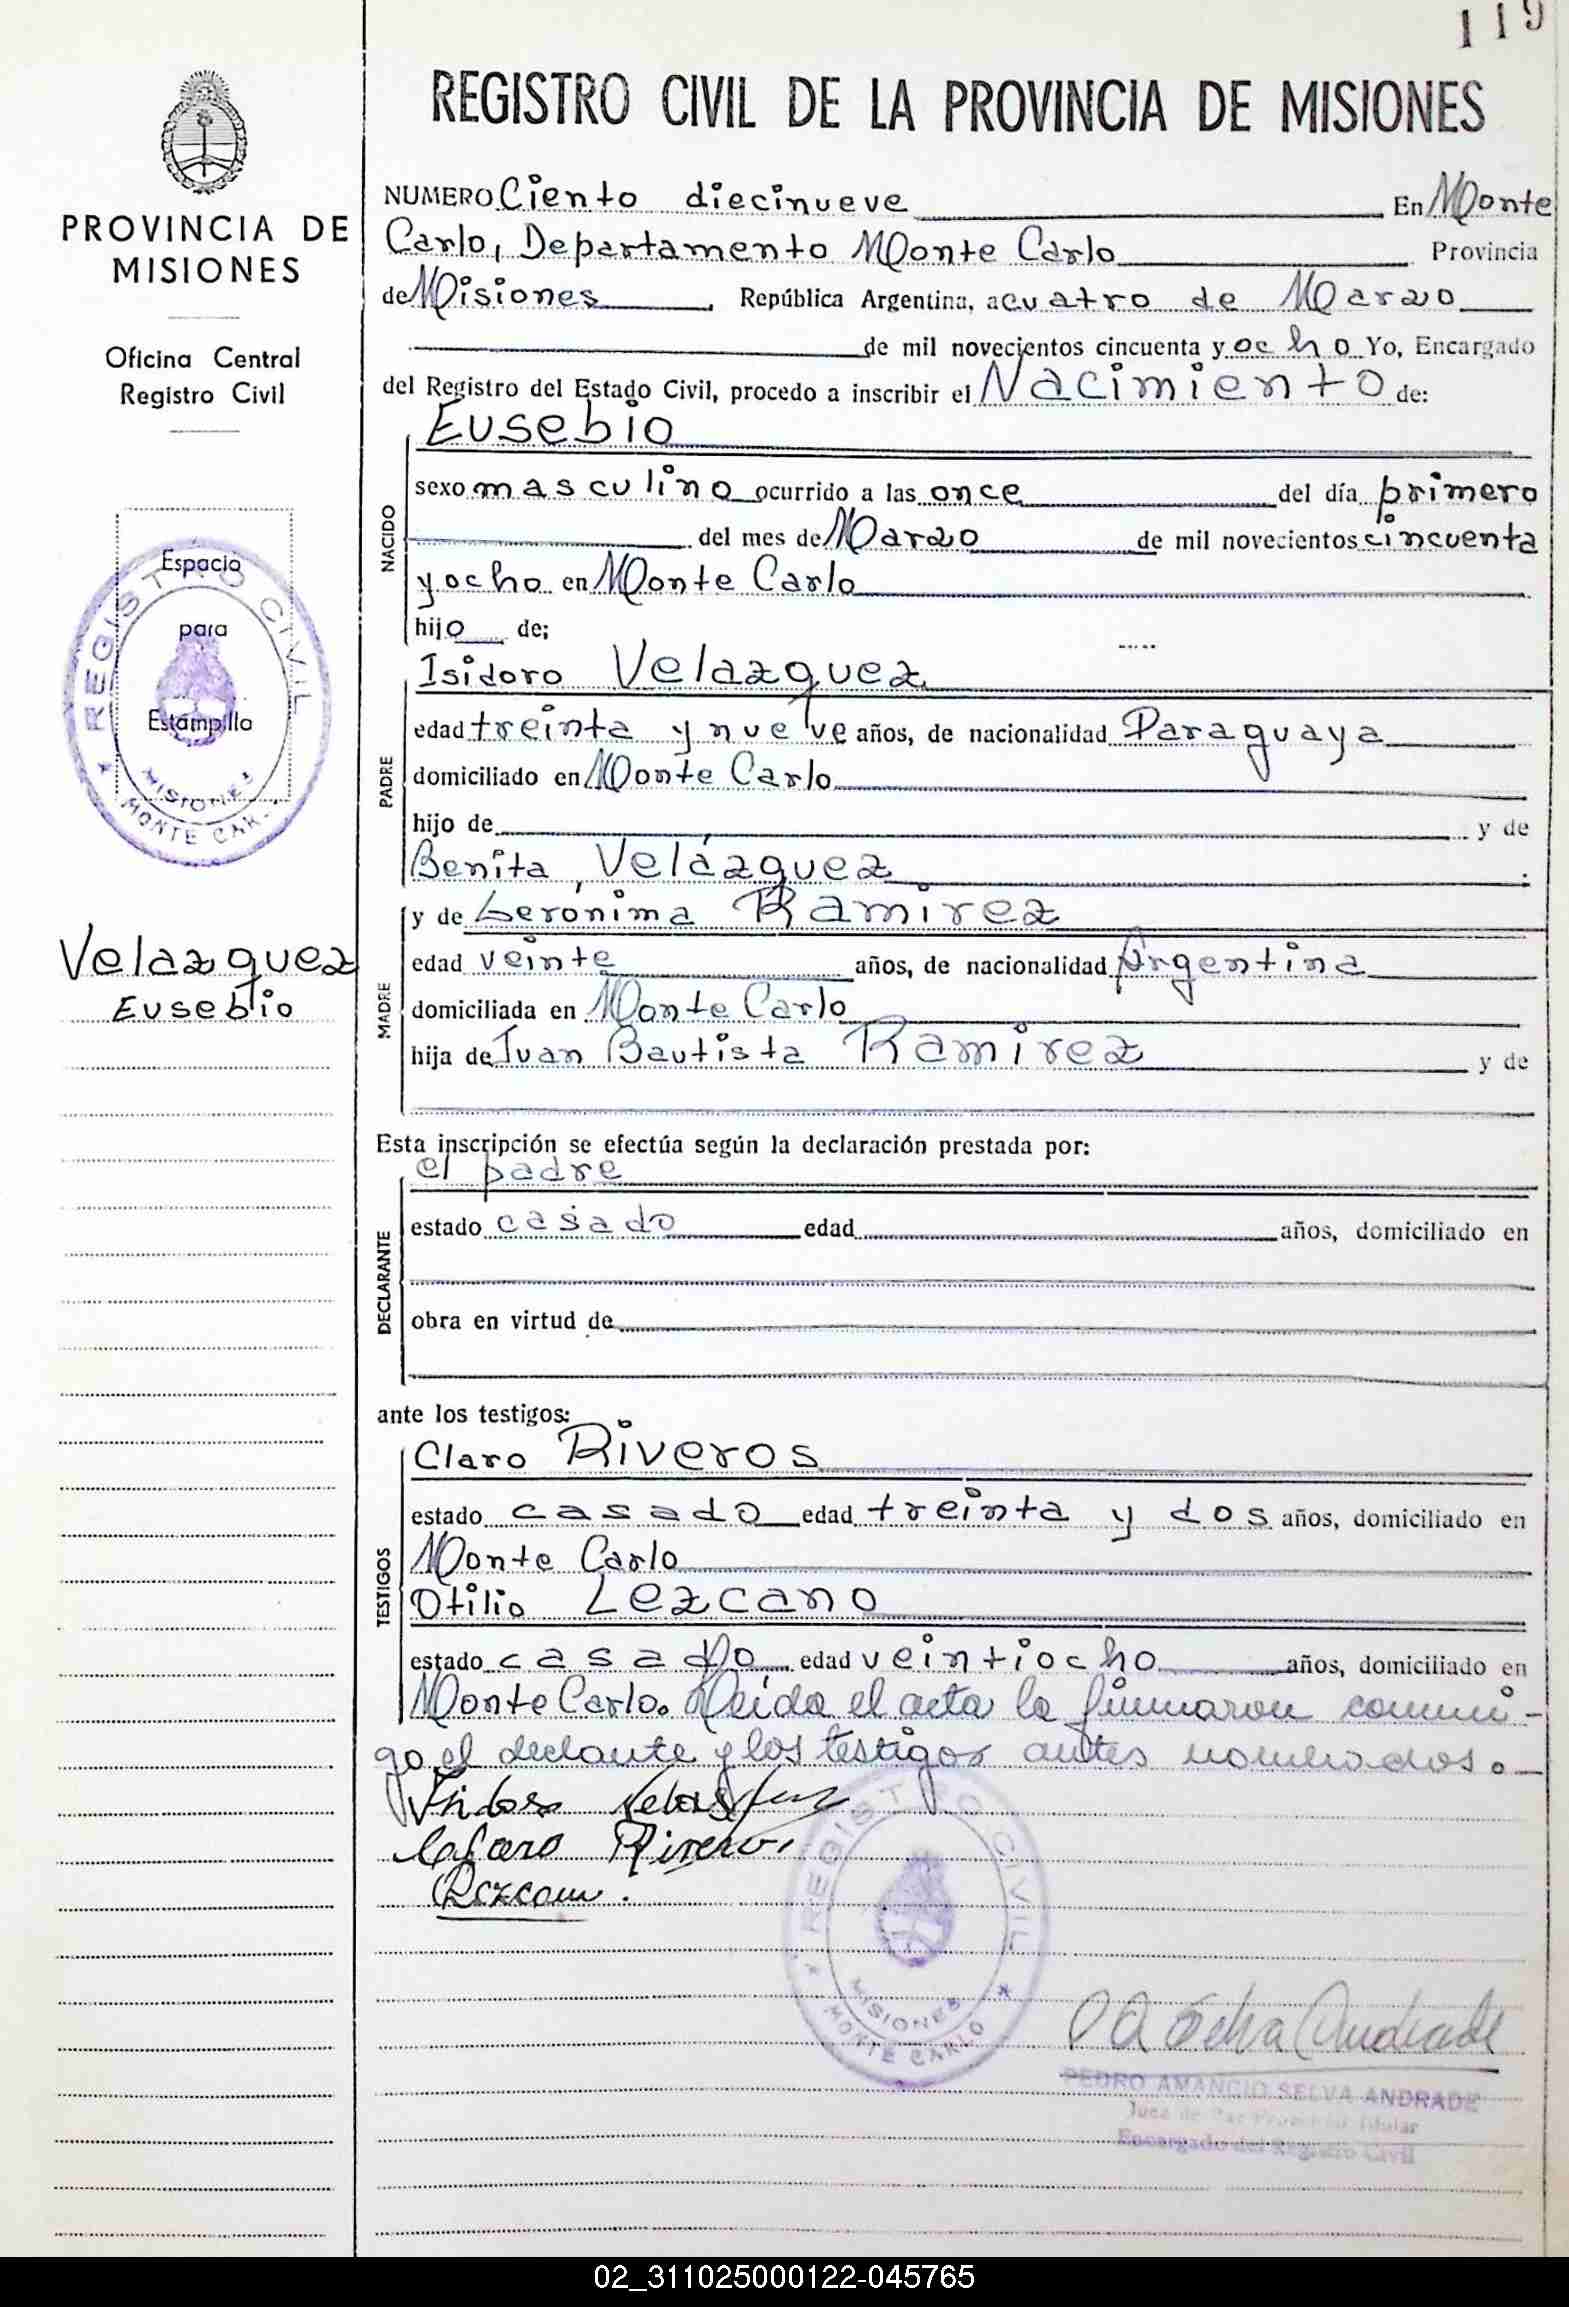 119
REGISTRO CIVIL DE LA PROVINCIA DE MISIONES
PROVINCIA DE
MISIONES
Oficina Central
Registro Civil
Espacio
para
Estampilla
REGISTRO CIVIL
MISIONES
MONTE CAR.
Velazquez
Eusebio
NUMERO Ciento diecinueve En Monte
Carlo, Departamento Monte Carlo Provincia
de Misiones, República Argentina, a cuatro de Marzo
de mil novecientos cincuenta y ocho Yo, Encargado
del Registro del Estado Civil, procedo a inscribir el Nacimiento de:
Eusebio
NACIDO
sexo masculino ocurrido a las once del día primero
del mes de Marzo de mil novecientos cincuenta
y ocho en Monte Carlo
hijo de;
Isidoro Velazquez
PADRE
edad treinta y nueve años, de nacionalidad Paraguaya
domiciliado en Monte Carlo
hijo de y de
Benita Velázquez
y de Gerónima Ramirez
MADRE
edad veinte años, de nacionalidad Argentina
domiciliada en Monte Carlo
hija de Juan Bautista Ramirez y de
Esta inscripción se efectúa según la declaración prestada por:
el padre
DECLARANTE
estado casado edad años, domiciliado en
obra en virtud de
ante los testigos:
Claro Riveros
TESTIGOS
estado casado edad treinta y dos años, domiciliado en
Monte Carlo
Otilio Lezcano
estado casado edad veintiocho años, domiciliado en
Monte Carlo. Leida el acta la firmaron conmi-
go el declante y los testigos antes nombrados.
Isidoro Velazquez
Claro Riveros
Lezcano.
REGISTRO CIVIL
MISIONES
MONTE CARLO
P A Selva Andrade
PEDRO AMANCIO SELVA ANDRADE
Juez de Paz Provincial Titular
Encargado del Registro Civil
02_311025000122-045765